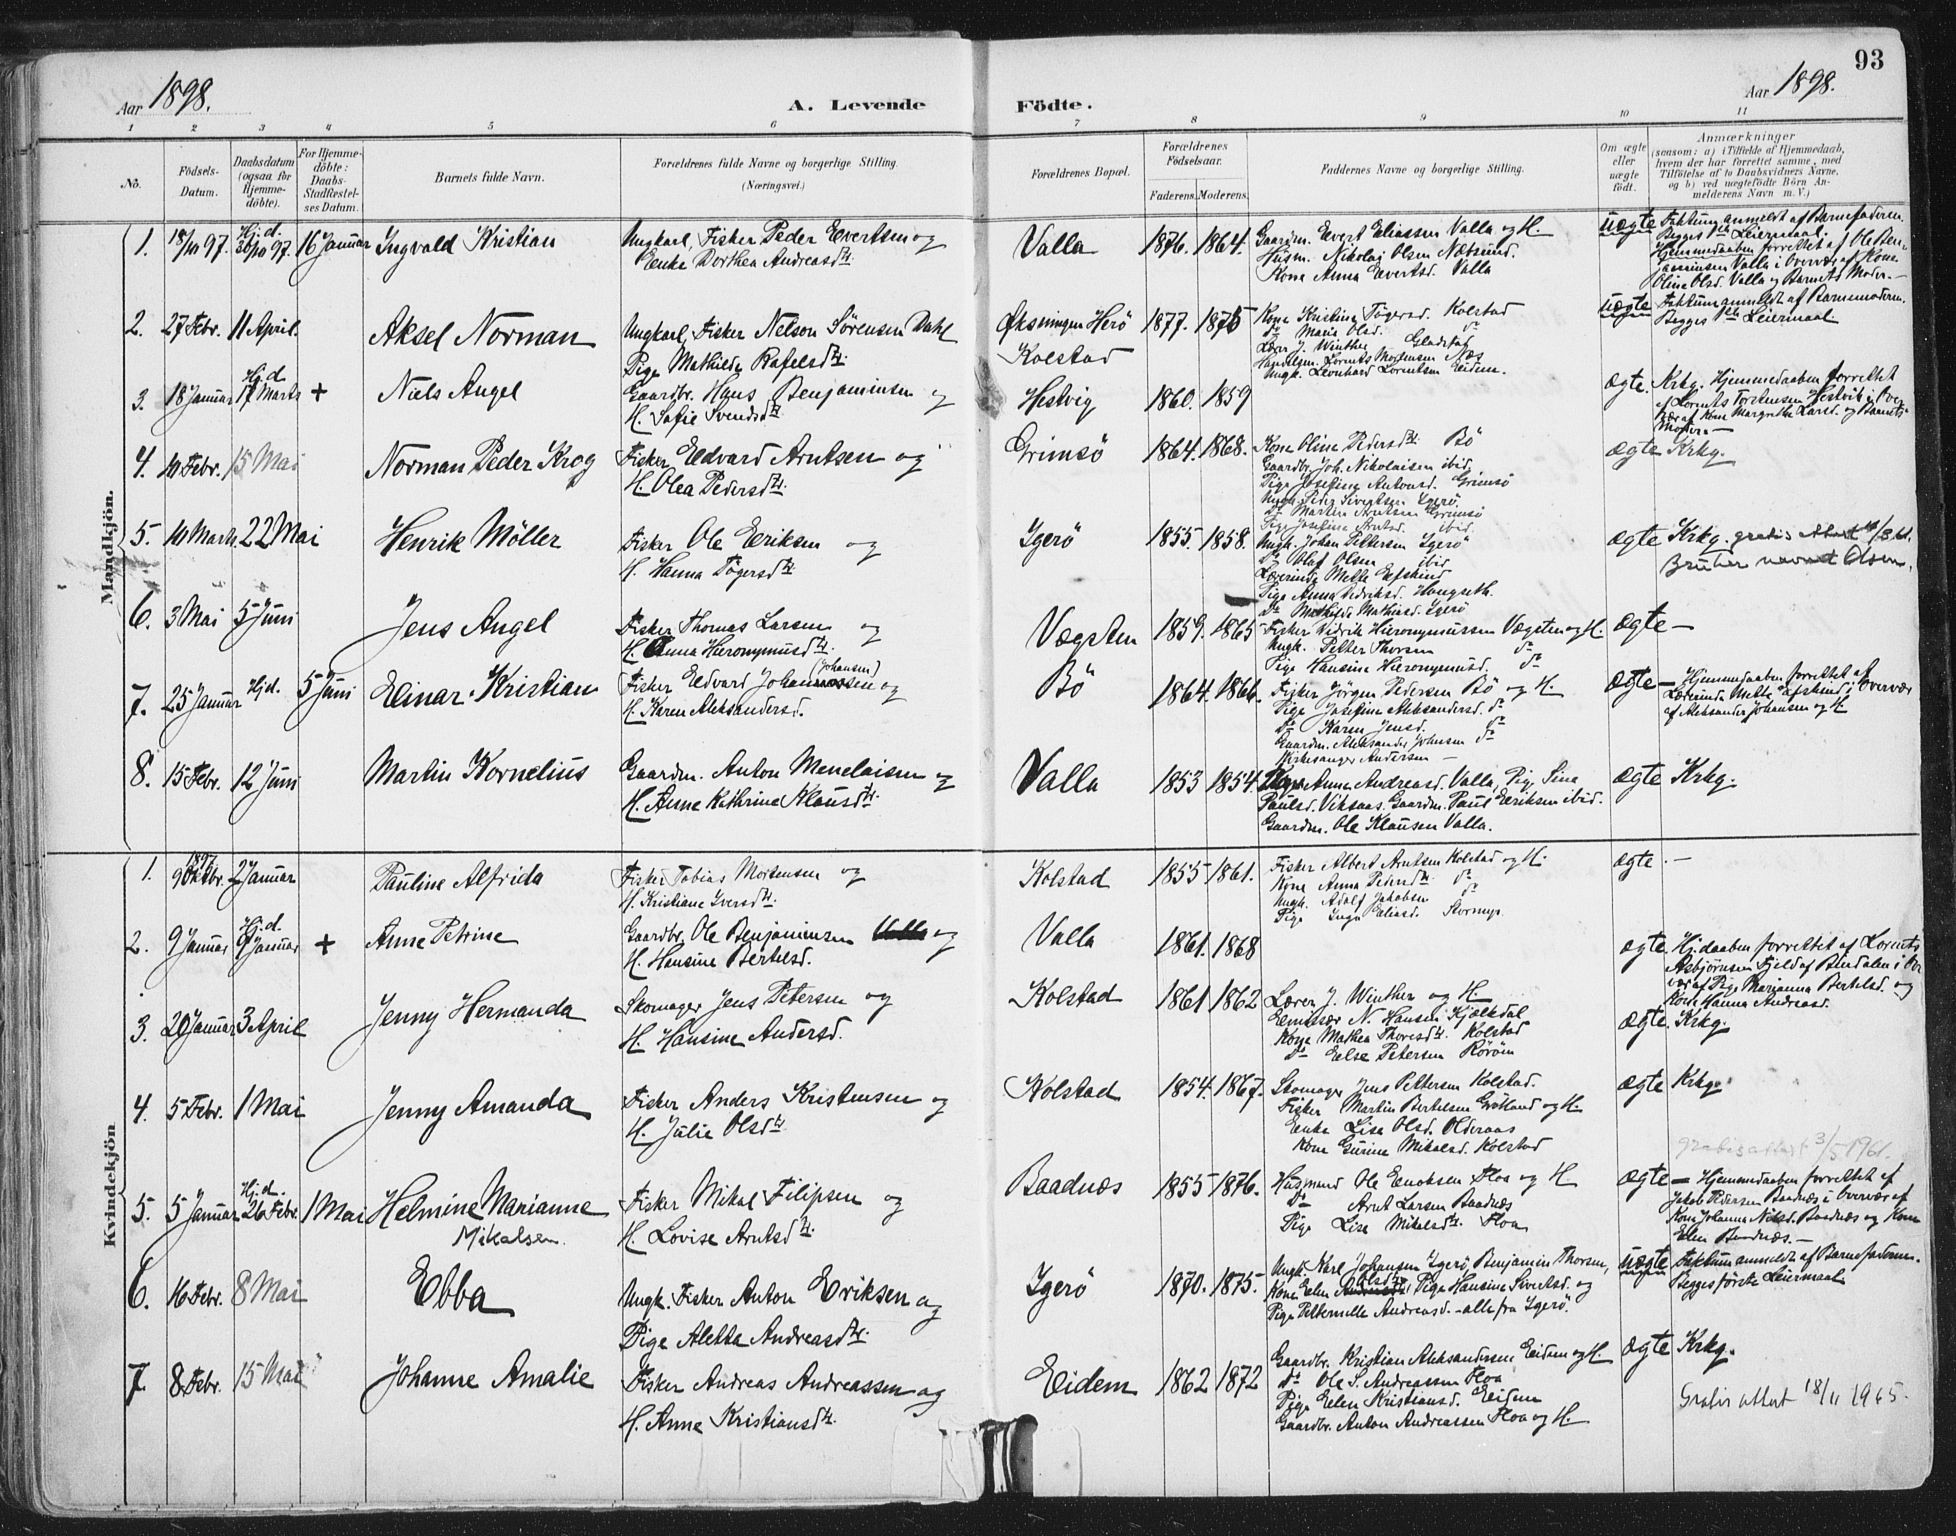 93
Aar 1898.
A. Levende Födte.
Aar 1898.
1 2 3 4 5 6 7 8 9 10 11
No.
Födsels-Datum.
Daabsdatum (ogsaa for Hjemmedöbte).
For Hjemmedöbte: Daabs-Stadfæstelses Datum.
Barnets fulde Navn.
Forældrenes fulde Navne og borgerlige Stilling.
(Næringsvei.)
Forældrenes Bopæl.
Forældrenes Födselsaar.
Faderens. Moderens.
Faddernes Navne og borgerlige Stilling.
Om ægte eller uægte födt.
Anmærkninger
(saasom: a) i Tilfælde af Hjemmedaab,
hvem der har forrettet samme, med
Tilföielse af to Daabsvidners Navne,
og b) ved uægtefödte Börn An-
melderens Navn m. V.)
Mandkjön.
1. 18/10 97. Hj.d. 30/10 97. 16 Januar Ingvald Kristian
Ungkarl, Fisker Peder Evertsen og
Enke Dorthea Andreasd.
Valla 1876. 1864.
Gaardm. Evert Eliassen Valla og H.
Husm. Nikolai Olsen Næsund.
Kone Anna Evertsd. Valla
uægte
Faktum anmeldt af Barnefaderen.
Begges Leiermaal.
Hjemmedaaben forrettet af Ole Ben-
jaminsen Valla i Overvær af Kone
Oline Olsd. Valla og Barnets Moder.—
2. 27 Febr. 11 April. Aksel Norman
Ungkarl, Fisker Nelson Sörensen Dahl
Pige Mathilde Rafelsdtr.
Öksningen Herö
Kolstad
1877. 1875
Kone Kristina Tögersd. Kolstad
Do Maria Olsd. do
Lærer J. Winther Gladstad
Handelsm. Lorents Mortensen Næs
Ungk. Leonhard Lorentsen Eidem.
uægte
Faktum anmeldt af Barnemoderen.
Begges Leiermaal.
3. 18 Januar Hj.d. 17 Marts + Niels Angel
Gaardbr. Hans Benjaminsen og
H. Sofie Svendsdtr.
Hestvig 1860. 1859
ægte.
Krkg. Hjemmedaaben forrettet
af Lorents Torstensen Hestvik i Over-
vær af Kone Margrethe Larsd. og Barnets
Moder.—
4. 10 Febr. 15 Mai Norman Peder Krog
Fisker Edvard Arntsen og
H. Olea Pedersdtr.
Grimsö 1864. 1868.
Kone Oline Pedersdtr. Bö
Gaardbr. Joh. Nikolaisen ibid.
Pige Josefine Antonsd. Grimsö
Ungk. Peder Sivertsen Igerö
Do Martin Arntsen Grimsö
Pige Josefine Arntsd. ibid.
ægte Krkg.
5. 10 Marts. 22 Mai Henrik Möller
Fisker Ole Eriksen og
H. Hanna Tögersdtr.
Igerö 1855. 1858.
Ungk. Johan Pettersen Igerö
Do Olaf Olsen ibid.
Lærerinde Mette Eifskind
Pige Anna Vedriksd.
Do Mathilde Mathiasd. Igerö
ægte Krkg. gratis attest
Bruker navnet Olsen.
6. 3 Mai 5 Juni Jens Angel
Fisker Thomas Larsen og
H. Anna Hieronymusdtr.
Vægsten 1859. 1865
Fisker Vidrik Hieronymussen Vægsten og H.
Ungk. Petter Thorsen do
Pige Hansine Hieronymusd. do
ægte —
7. 25 Januar Hjd. 5 Juni Einar Kristian
Fisker Edvard Johannessen (Johansen) og
H. Karen Aleksandersd.
Bö 1864. 1866.
Fisker Jörgen Pedersen Bö og H.
Pige Josefine Aleksandersd. do
Do Karen Jensd. do
Gaardm. Aleksander Johnsen do
Kirkesanger Andersen —
ægte — Hjemmedaaben forrettet af
Lærerinde Mette Eifskind i Overvær
af Aleksander Johansen og H.
8. 15 Febr. 12 Juni Martin Kornelius
Gaardm. Anton Menelaisen og
H. Anne Kathrine Klausdtr.
Valla 1853 1854.
Kone Anne Andreasd. Valla, Pige Sina
Paulsd. Viksaas. Gaardm. Paul Eriksen ibid.
Gaardm. Ole Klausen Valla.
ægte Krkg.
Kvindekjön
1. 1897 9 Oktbr. 2 Januar Pauline Alfrida
Fisker Tobias Mortensen og
H. Kristiane Iversdtr.
Kolstad 1855 1861.
Fisker Albert Arntsen Kolstad og H.
Kone Anna Pedersdtr. do
Ungk. Adolf Jakobsen do
Pige Inga Eliasd.
ægte. —
2. 9 Januar Hj.d. 9 Januar + Anne Petrine
Gaardbr. Ole Benjaminsen Valla og
H. Hansine Bertelsd.
Valla 1861. 1868
ægte.
Hj.daaben forrettet af Lorents
Asbjörnsen Fjeld af Bindalen i Over-
vær af Pige Marianna Bertelsd. og
Kone Hanna Andreasd.
3. 20 Januar 3 April Jenny Hermanda
Skomager Jens Petersen og
H. Hansine Andersd.
Kolstad 1861 1862
Lærer J. Winther og H.
Emissær N. Hansen Kjælkdal
Kone Mathea Thoresdtr. Kolstad
Do Else Petersen Röröen
ægte. Krkg.
4. 5 Febr. 1 Mai Jenny Amanda
Fisker Anders Kristensen og
H. Julie Olsdtr.
Kolstad 1854. 1867.
Skomager Jens Pettersen Kolstad.
Fisker Martin Bertelsen Grötland og H.
Enke Lise Olsd. Olderaas
Kone Gurine Mikalsd. Kolstad
ægte Krkg.
gratisattest 3/5 1961.
5. 5 Januar Hj.d. 26 Febr. 1 Mai Helmine Marianne
Mikalsen.
Fisker Mikal Filipsen og
H. Lovise Arntsdtr.
Baadnæs 1855 1876.
Husmand Ole Enoksen Floa og H.
Do Arnt Larsen Baadnæs
Pige Lise Mikalsdtr. Floa
ægte — Hjemmedaaben forrettet af
Jakob Pedersen Baadnæs i Overvær af
Kone Johanna Nilsd. Baadnæs og Kone
Elen Baadnæs.—
6. 16 Febr. 8 Mai Ebba
Ungk. Fisker Anton Eriksen og
Pige Aletta Andreasdtr.
Igerö 1870. 1875.
Ungk. Karl Johansen Igerö, Benjamin Thorsen,
Kone Elen Olsd. Pige Hansine Sivertsd. og
Pige Petternille Andreasd. — alle fra Igerö.
uægte
Faktum anmeldt af Barnefaderen.
Begges förste Leiermaal.
7. 8 Febr. 15 Mai Johanne Amalie
Fisker Andreas Andreassen og
H. Anne Kristiansdtr.
Eidem 1862 1872
Gaardbr. Kristian Aleksandersen Eidem og H.
Do Ole S. Andreassen Floa
Pige Elen Kristiansd. Eidem
Gaardbr. Anton Andreassen Floa og H.
ægte Krkg.
Gratis attest 18/11 1965.